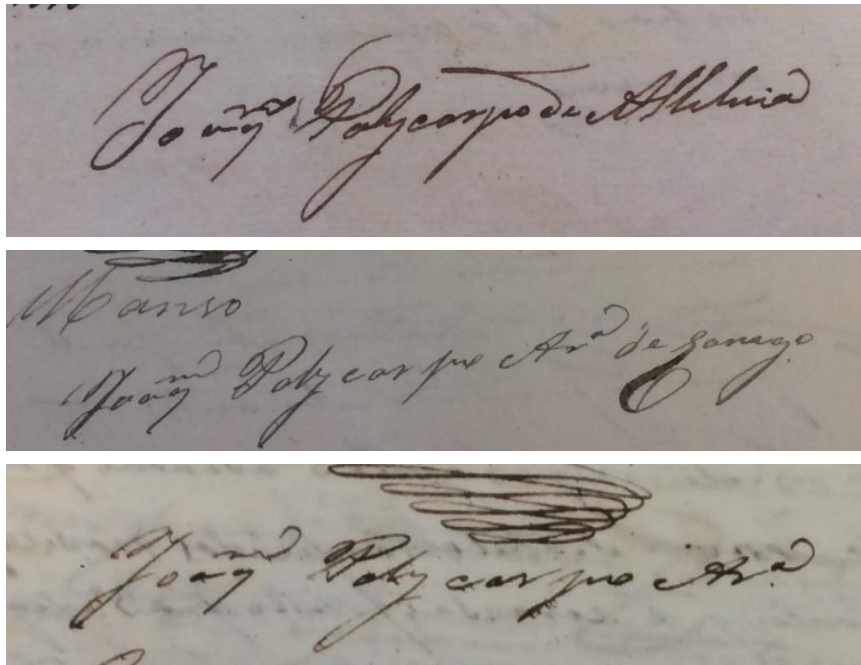 Joaqm Polycarpo de Alleluia
Manso
Joaqm Polycarpo Ara de
Joaqm Polycarpo Ara